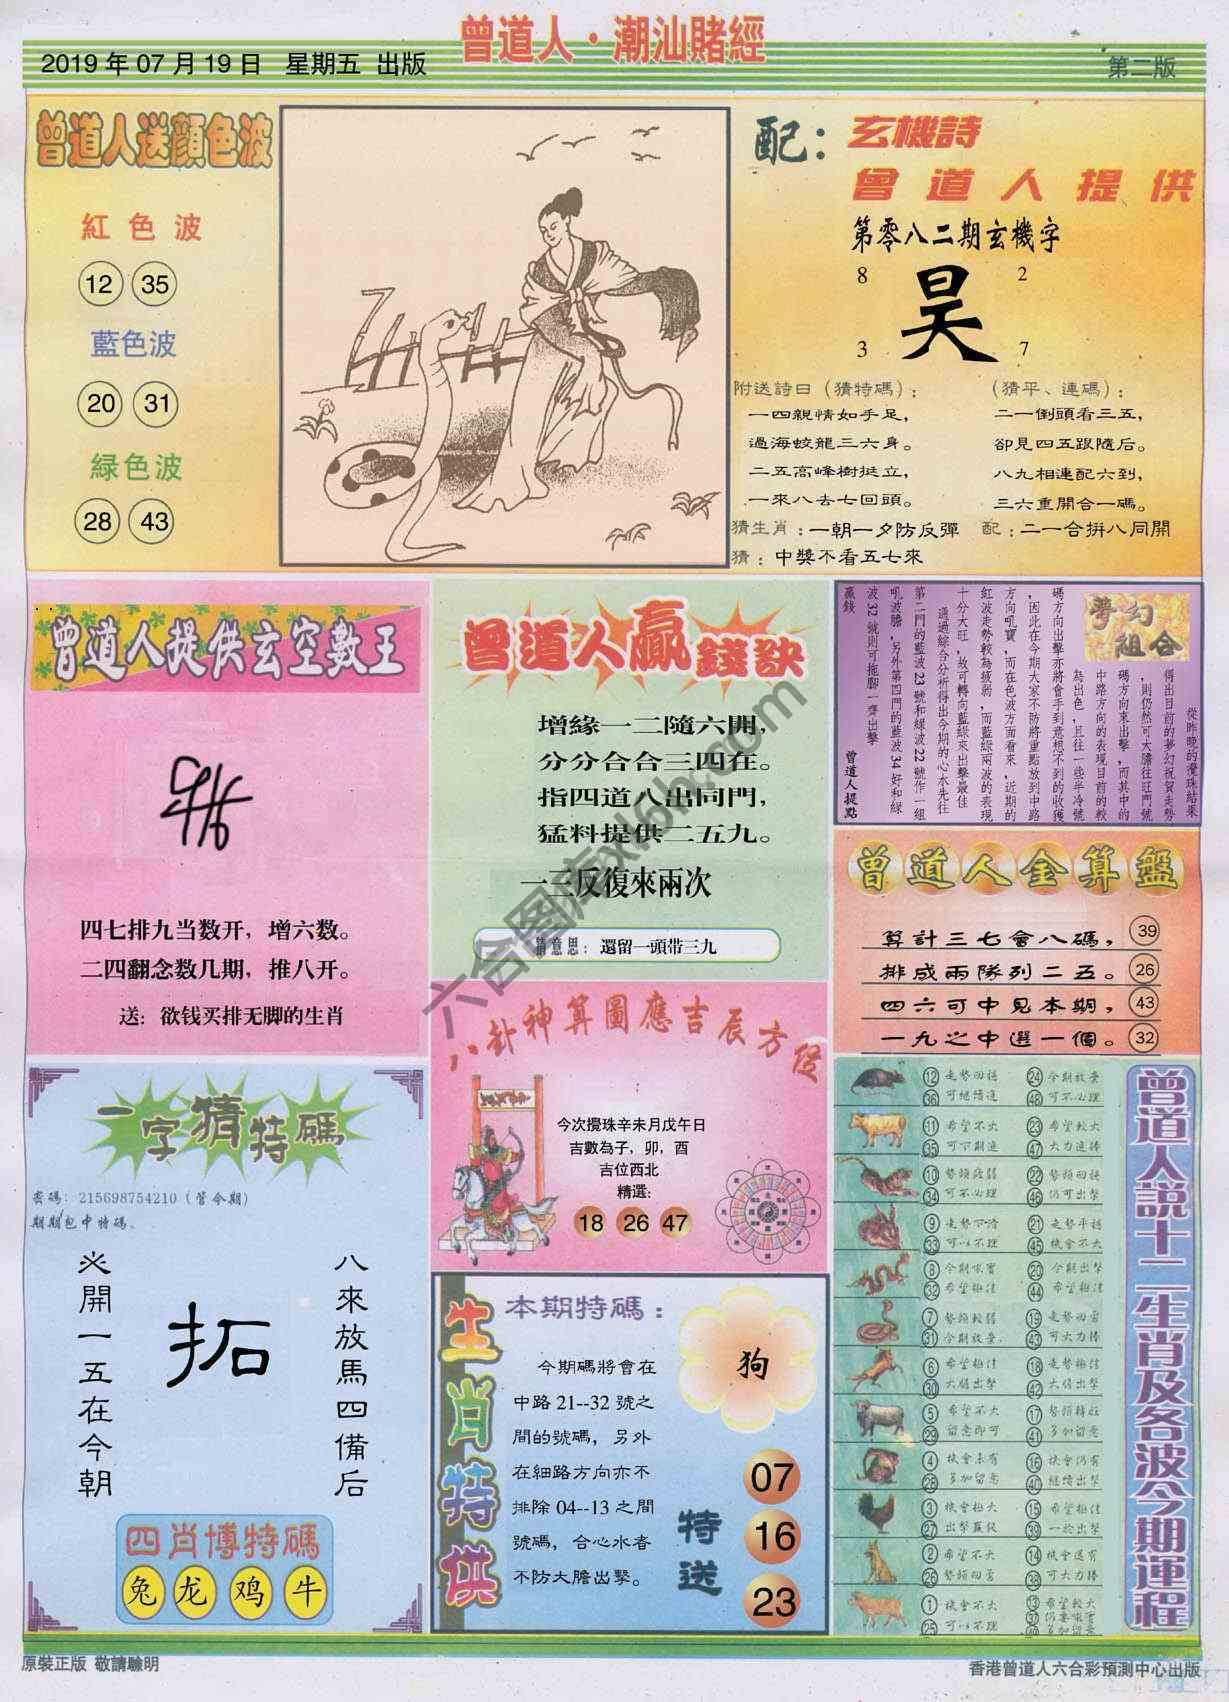 曾道人·潮汕賭經
2019年07月19日 星期五 出版
第二版
曾道人送顔色波
紅色波
12 35
藍色波
20 31
緑色波
28 43
配：玄機詩
曾道人提供
第零八二期玄機字
8 2
昊
3 7
附送詩曰（猜特碼）：
一四親情如手足，
過海蛟龍三六身。
二五高峰樹挺立，
一來八去七回頭。
（猜平、連碼）：
二一倒頭看三五，
卻見四五跟隨后。
八九相連配六到，
三六重開合一碼。
猜生肖：一朝一夕防反彈
配：二一合拚八同開
猜：中獎不看五七來
曾道人提供玄空數王
四七排九当数开，增六数。
二四翻念数几期，推八开。
送：欲钱买排无脚的生肖
曾道人贏錢訣
增緣一二隨六開，
分分合合三四在。
指四道八出同門，
猛料提供二五九。
一三反復來兩次
猜意思：還留一頭带三九
夢幻組合
從昨晚的攪珠結果
得出目前的夢幻祝賀走勢
，則仍然可大膽往旺門號
碼方向來出擊，而其中的
中路方向的表現目前的較
為出色，且往一些半冷號
碼方向出擊亦將會手到意想不到的收獲
，因此在今期大家不防將重點放到中路
方向吼寶，而在色波方面看來，近期的
紅波走勢較為疲弱，而藍綠兩波的表現
十分大旺，故可轉向藍綠來出擊最佳
通過綜合分析得出今期的心水先往
第二門的藍波23號和緑波22號作一組
吼波膽，另外第四門的藍波34好和緑
波32號則可拖腳一齊出擊
贏錢
曾道人提點
曾道人金算盤
算計三七會八碼，39
排成兩隊列二五。26
四六可中見本期，43
一九之中選一個。32
八卦神算圖應吉辰方位
今次攪珠辛未月戊午日
吉數為子，卯，酉
吉位西北
精選：
18 26 47
一字猜特碼
密碼：215698754210（管今期）
期期包中特碼。
八來放馬四備后
拓
必開一五在今朝
四肖博特碼
兔 龙 鸡 牛
生肖特供
本期特碼：
今期碼將會在
中路21--32號之
間的號碼，另外
在細路方向亦不
排除04--13之間
號碼，合心水者
不防大膽出擊。
狗
特送
07
16
23
曾道人説十二生肖及各波今期運程
12 36 走勢回穩 可繼續追 24 48 今期放棄 可不必理
11 35 希望不大 可下期追 23 47 希望較大 大力追捧
10 34 勢頭疲弱 可不必理 22 46 勢頭回穩 仍可出擊
9 33 走勢下滑 可以不理 21 45 走勢平穩 機會不大
8 32 今期吼寶 希望極佳 20 44 今期出擊 希望極佳
7 31 勢頭較弱 今期放棄 19 43 走勢回勇 可大力捧
6 30 希望極佳 大膽出擊 18 42 走勢極佳 大膽出擊
5 29 希望不大 留意即可 17 41 勢頭轉旺 多加留意
4 28 機會未有 多加留意 16 40 機會仍有 繼續出擊
3 27 機會極大 出擊羅便 15 39 希望極佳 一於出擊
2 26 希望不大 勢頭回落 14 38 機會還有 可大力捧
1 25 機會不大 可以不理 13 37 49 希望較大 仍要吼實 多加留意
原裝正版 敬請驗明
香港曾道人六合彩預測中心出版
六合图库xk6hx.com